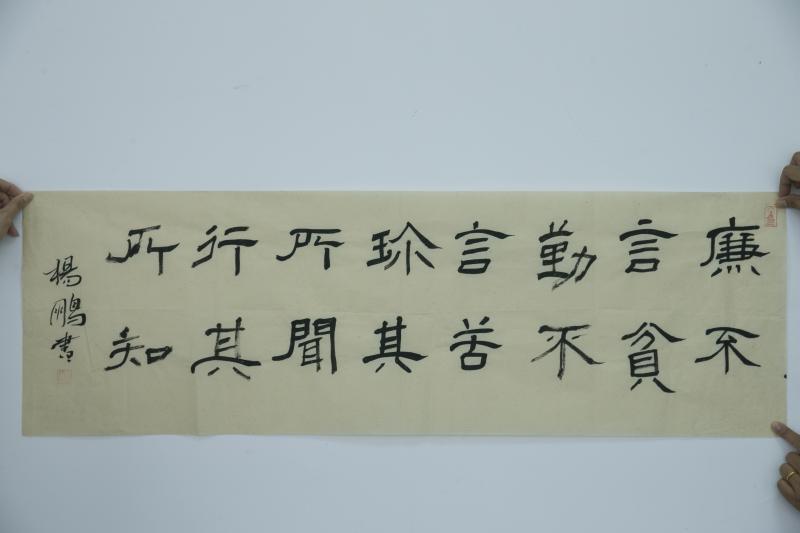 廉不
言貧
勤不
言苦
珎其
所聞
行其
所知
楊鵬書